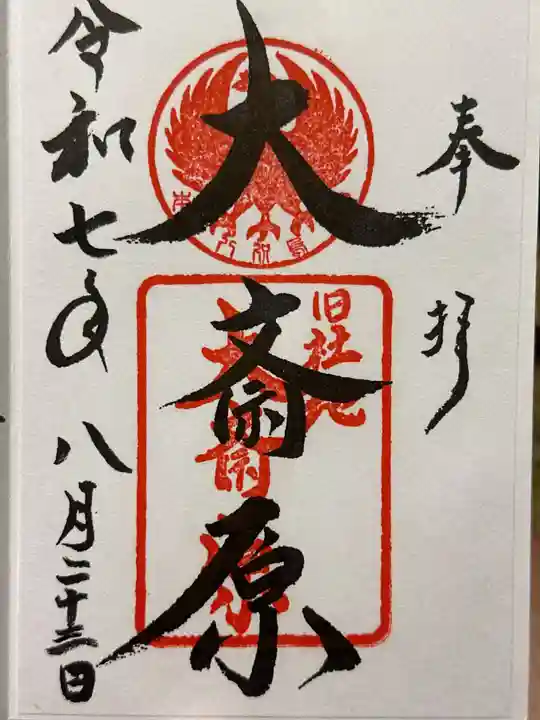 奉拝
大斎原
旧社地
大斎原
令和七年
八月二十三日